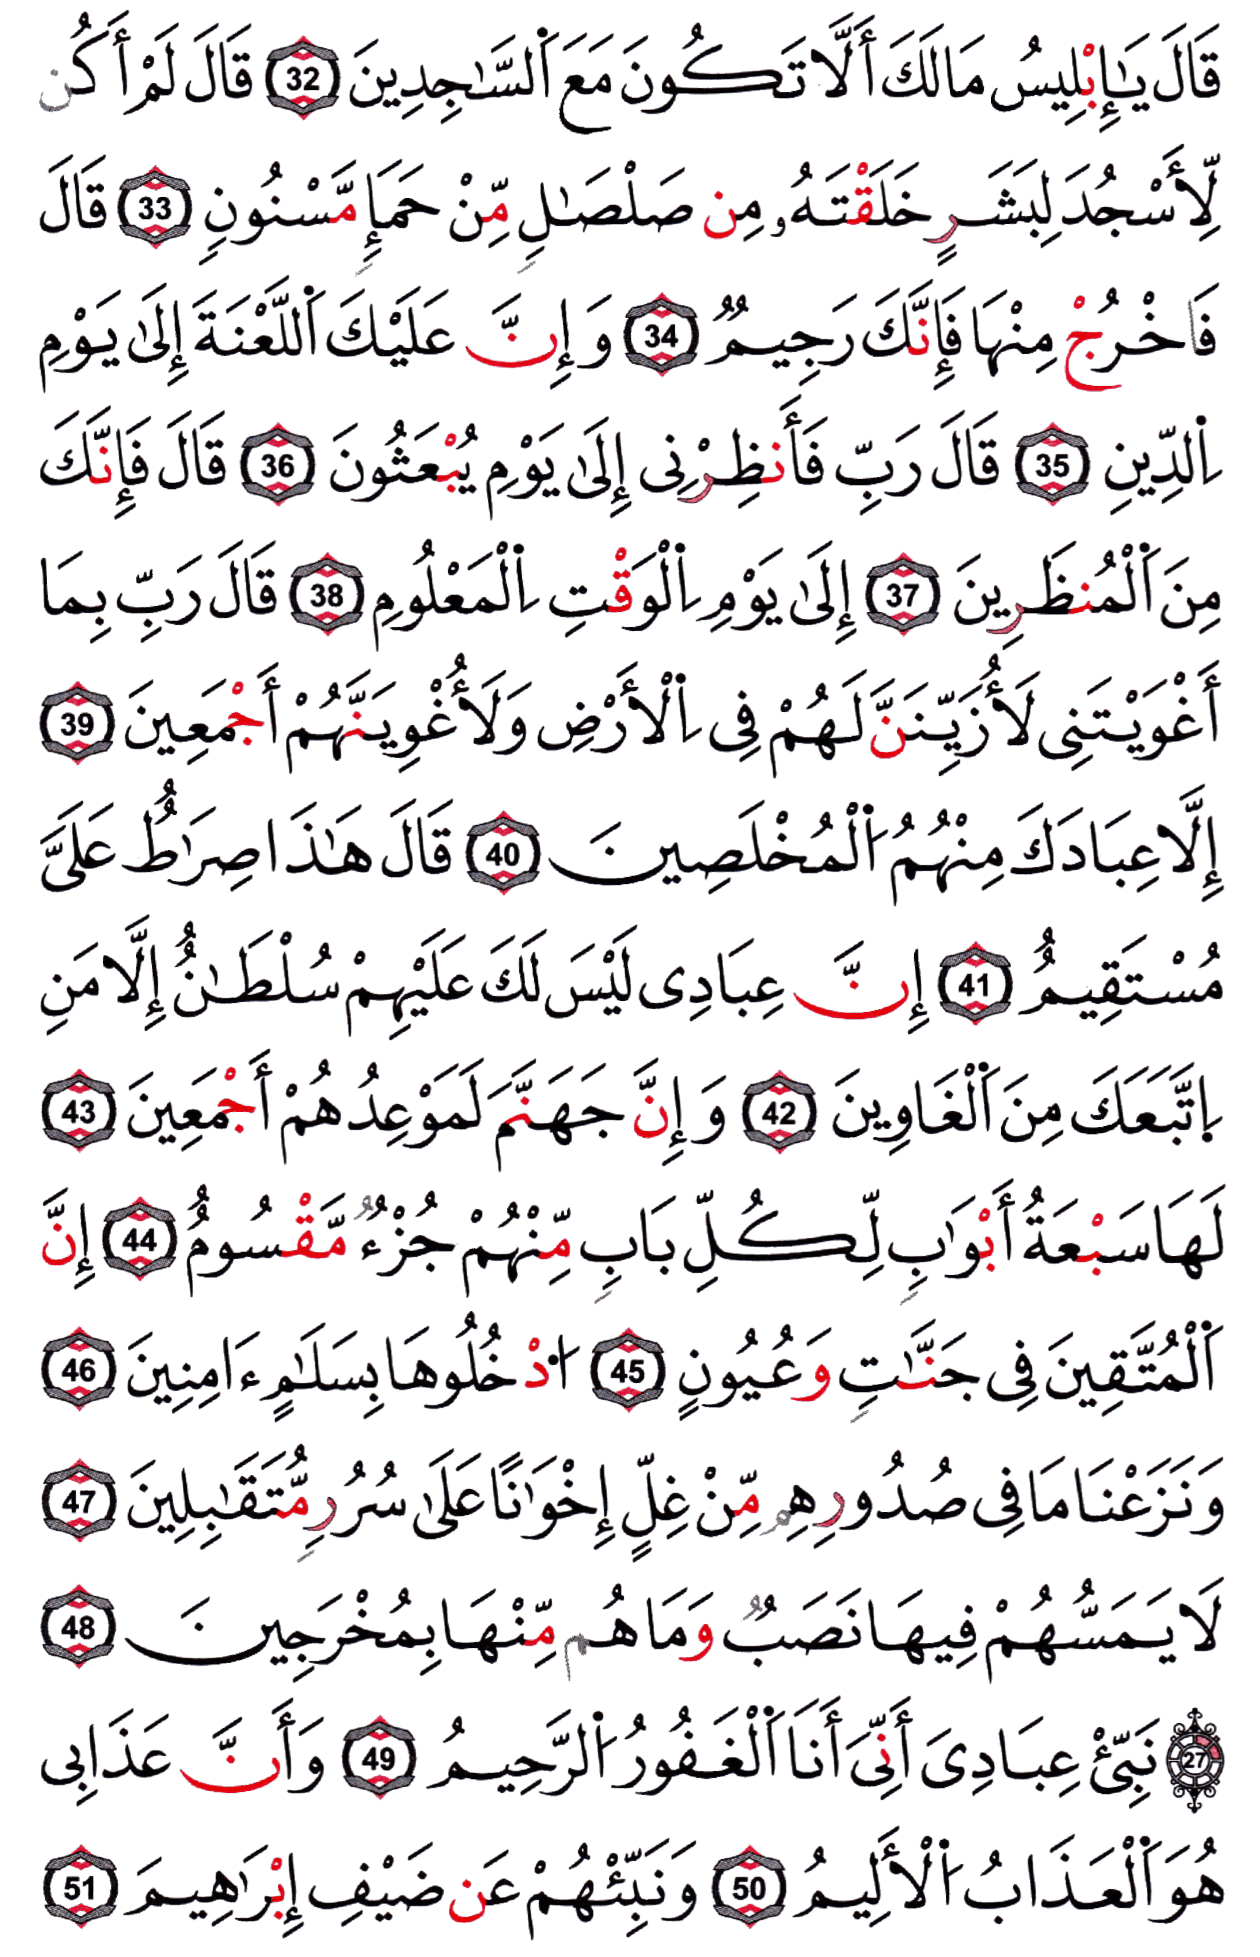 قَالَ يَـٰإِبْلِيسُ مَا لَكَ أَلَّا تَكُونَ مَعَ اَ۬لسَّـٰجِدِينَ 32 قَالَ لَمْ أَكُن
لِّأَسْجُدَ لِبَشَرٍ خَلَقْتَهُۥ مِن صَلْصَـٰلٍ مِّنْ حَمَإٍ مَّسْنُونٍ 33 قَالَ
فَاخْرُجْ مِنْهَا فَإِنَّكَ رَجِيمٌ 34 وَإِنَّ عَلَيْكَ اَ۬للَّعْنَةَ إِلَىٰ يَوْمِ
اِ۬لدِّينِ 35 قَالَ رَبِّ فَأَنظِرْنِى إِلَىٰ يَوْمِ يُبْعَثُونَ 36 قَالَ فَإِنَّكَ
مِنَ اَ۬لْمُنظَرِينَ 37 إِلَىٰ يَوْمِ اِ۬لْوَقْتِ اِ۬لْمَعْلُومِ 38 قَالَ رَبِّ بِمَا
أَغْوَيْتَنِى لَأُزَيِّنَنَّ لَهُمْ فِى اِ۬لْأَرْضِ وَلَأُغْوِيَنَّهُمْ أَجْمَعِينَ 39
إِلَّا عِبَادَكَ مِنْهُمُ اُ۬لْمُخْلَصِينَ 40 قَالَ هَـٰذَا صِرَٰطٌ عَلَىَّ
مُسْتَقِيمٌ 41 إِنَّ عِبَادِى لَيْسَ لَكَ عَلَيْهِمْ سُلْطَـٰنٌ إِلَّا مَنِ
اِ۪تَّبَعَكَ مِنَ اَ۬لْغَاوِينَ 42 وَإِنَّ جَهَنَّمَ لَمَوْعِدُهُمْ أَجْمَعِينَ 43
لَهَا سَبْعَةُ أَبْوَٰبٍ لِّكُلِّ بَابٍ مِّنْهُمْ جُزْءٌ مَّقْسُومٌ 44 إِنَّ
اَ۬لْمُتَّقِينَ فِى جَنَّـٰتٍ وَعُيُونٍ 45 اُ۟دْخُلُوهَا بِسَلَـٰمٍ ءَامِنِينَ 46
وَنَزَعْنَا مَا فِى صُدُورِهِم مِّنْ غِلٍّ إِخْوَٰنًا عَلَىٰ سُرُرٍ مُّتَقَـٰبِلِينَ 47
لَا يَمَسُّهُمْ فِيهَا نَصَبٌ وَمَا هُم مِّنْهَا بِمُخْرَجِينَ 48
27 نَبِّئْ عِبَادِىَ أَنِّىَ أَنَا اَ۬لْغَفُورُ اُ۬لرَّحِيمُ 49 وَأَنَّ عَذَابِى
هُوَ اَ۬لْعَذَابُ اُ۬لْأَلِيمُ 50 وَنَبِّئْهُمْ عَن ضَيْفِ إِبْرَٰهِيمَ 51